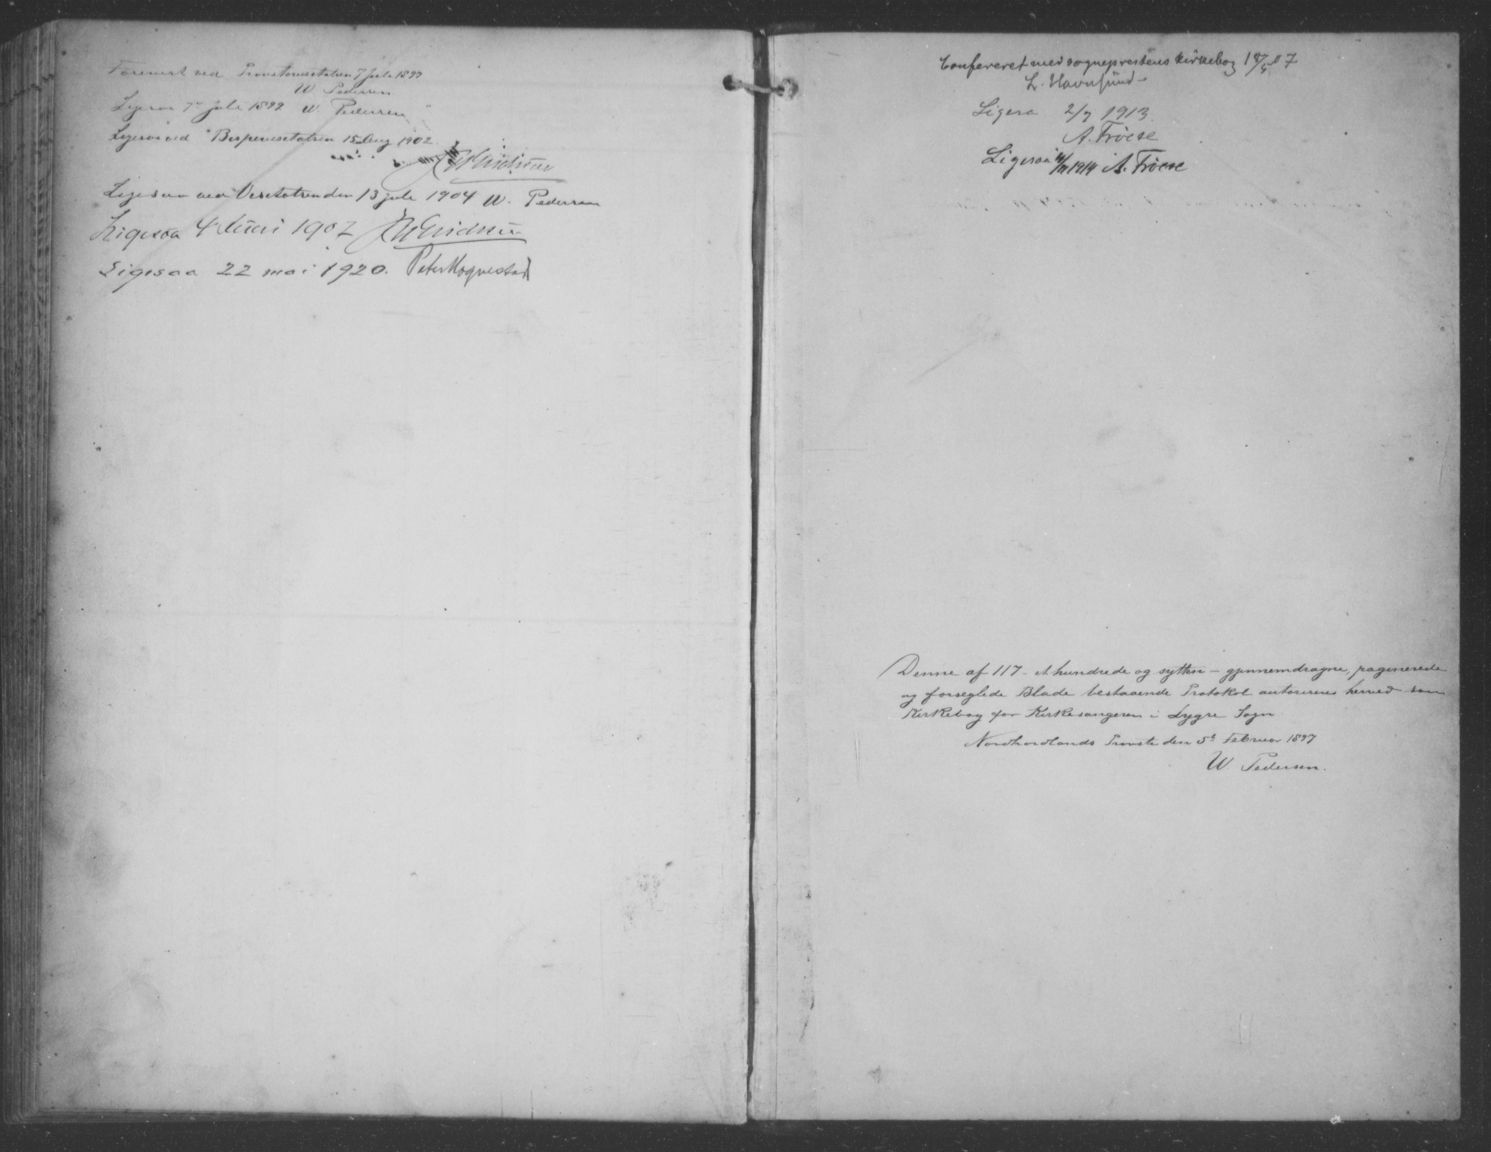 Forevist ved Provstevisitatsen 7 juli 1899
W. Pedersen
Ligesaa 7de juli 1899 W. Pedersen
Ligesaa ved Bispevisitatsen 15 Aug 1902
Ligesaa ved Visitatsen den 13 juli 1904 W. Pedersen
Ligesaa 4 Juni 1907
Ligesaa 22 mai 1920. Peter Hognestad
Confereret med sogneprestens kirkebog 18/5 07
L. Havnsund
Ligesa 2/7 1913.
A. Frøese
Ligesaa 1914 A. Frøese
Denne af 117 - et hundrede og sytten - gjennemdragne, paginerede
og forseglede Blade bestaaende Protokol autoriseres herved som
Kirkebog for Kirkesangeren i Lygre Sogn
Nordhordlands Provsti den 5te Februar 1897
W. Pedersen.